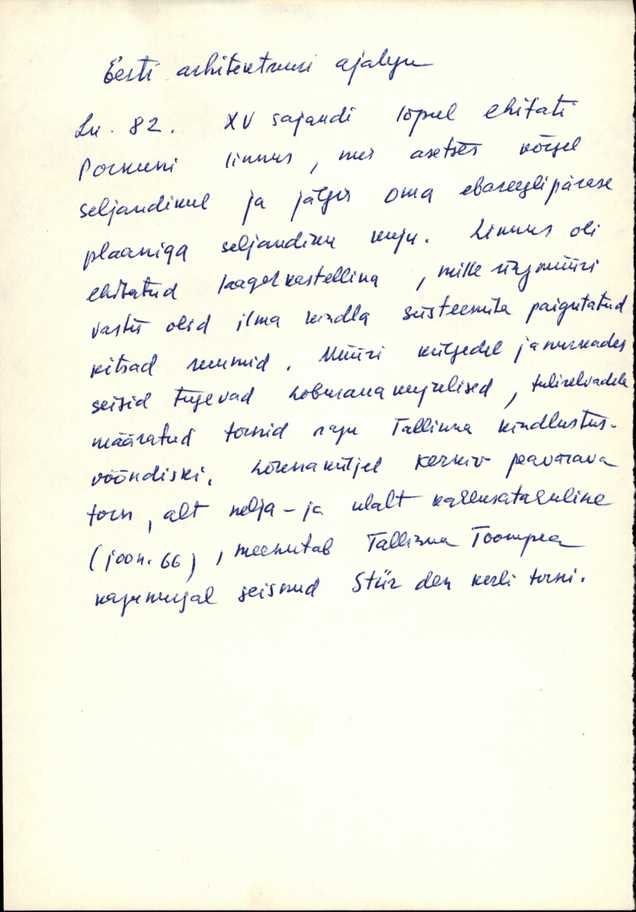 Eesti arhitektuuri ajalugu
Lk. 82. XV sajandi lõpul ehitati
Porkuni linnus, mis asetses kõrgel
seljandikul ja jälgis oma ebareeglipärase
plaaniga seljandiku kuju. Linnus oli
ehitatud laagerkastellina, mille ringmüüri
vastu olid ilma kindla süsteemita paigutatud
kitsad ruumid. Müüri külgedel ja nurkades
seisid tugevad hoburauakujulised, tulirelvadele
määratud tornid nagu Tallinna kindlustus-
vööndiski. Lõunaküljel kerkiv peavärava
torn, alt nelja- ja ülalt kaheksatahuline
(joon. 66), meenutab Tallinna Toompea
kagunurgal seisnud Stür den kerli torni.